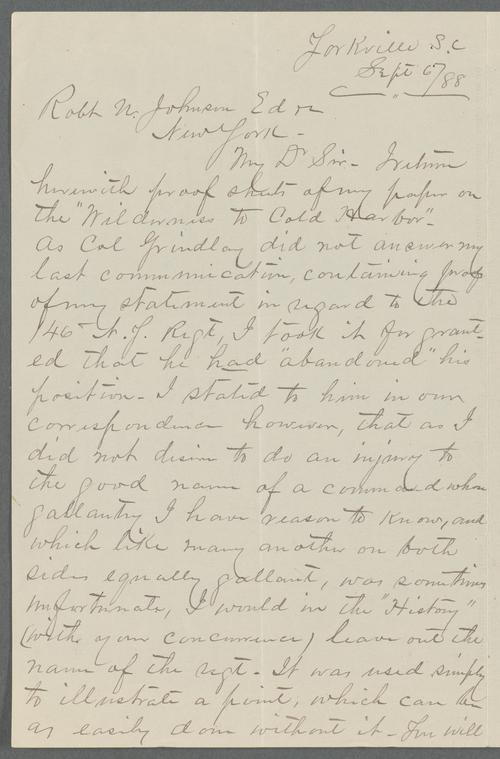 Yorkville S.C
Sept 6/88
Robt N. Johnson Ed
New York -
My Dr Sir - I return
herewith proof sheets of my paper on
the "Wilderness to Cold Harbor" -
As Col Grindlay did not answer my
last communication, containing proof
of my statement in regard to the
146 N.Y. Regt, I took it for grant-
ed that he had "abandoned" his
position - I stated to him in our
correspondence however, that as I
did not desire to do an injury to
the good name of a command whose
gallantry I have reason to know, and
which like many another on both
sides equally gallant, was sometimes
unfortunate, I would in the "History"
(with your concurrence) leave out the
name of the regt - It was used simply
to illustrate a point, which can be
as easily done without it - You will